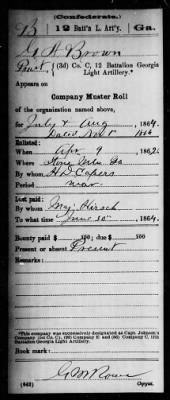 (Confederate.)
B 12 Batt'n L. Art'y. Ga.
G H Brown
Pvt, (3d) Co. C, 12 Battalion Georgia
Light Artillery.*
Appears on
Company Muster Roll
of the organization named above,
for July & Aug, 1864.
Dated Oct 1864
Enlisted:
When Apr 9, 1862.
Where Stone Mtn Ga
By whom H D Capers
Period war
Last paid:
By whom Maj Hirsch
To what time June 30, 1864.
Bounty paid $ 100; due $ 100
Present or absent Present
Remarks:
*This company was successively designated as Capt. Johnson's
Battalion Georgia Light Artillery.
Book mark:
G M Rowe
(642) Copyist.